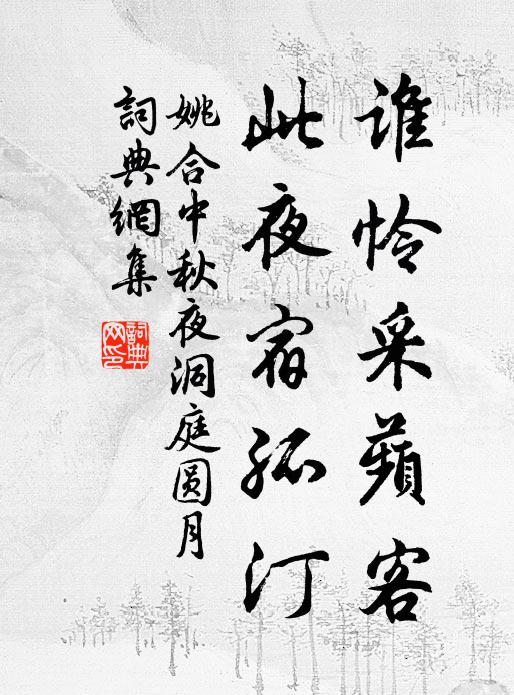 谁怜采蘋客
此夜宿孤汀
姚合中秋夜洞庭圆月
詞典網集
詞典网印